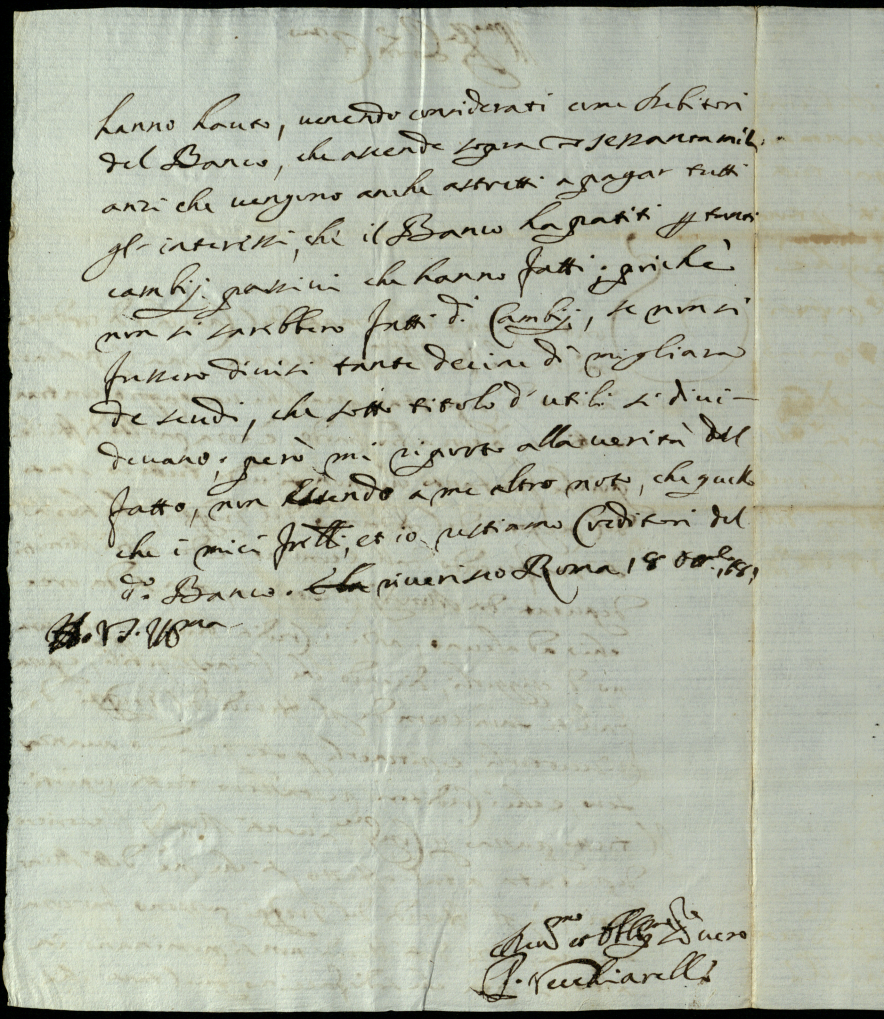 hanno hauto, uenendo considerati come Debitori
del Banco, che ascende sopra sessantamila
anzi che uengono anche astretti a pagar tutti
gl'interessi, che il Banco ha patiti p tanti
cambij passiui che hanno fatti; perche
non si sarebbero fatti di Cambij, se non si
fussero diuisi tante decine di migliara
de scudi, che sotto titolo d'utili si diui-
deuano; però mi riporto alla uerità del
fatto, non essendo a me altro noto, che quello
che i miei frelli, et io restiamo Creditori del
do. Banco. riuerisco Roma 18
V. S. Illma
Deumo et Obligmo Seruo
Vecchiarelli